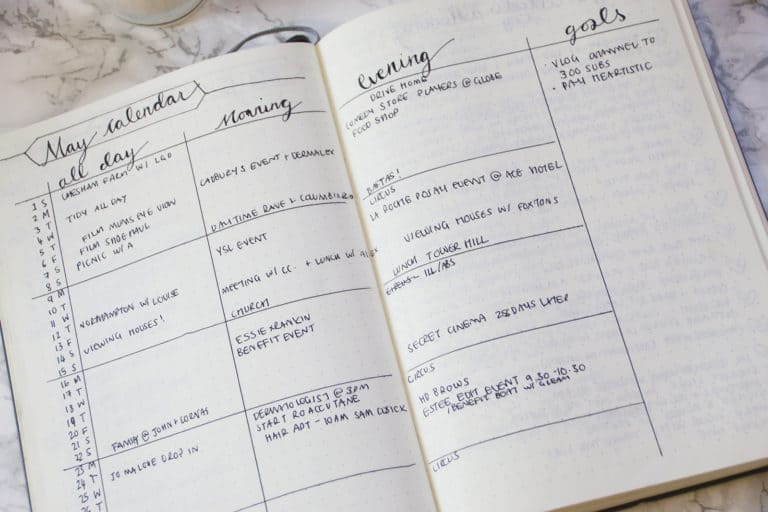 May calendar
all day
Morning
evening
goals
1 S
2 M
3 T
4 W
5 T
6 F
7 S
8 S
9 M
10 T
11 W
12 T
13 F
14 S
15 S
16 M
17 T
18 W
19 T
20 F
21 S
22 S
23 M
24 T
25 W
26 T
CHESHAM FARM W/
TIDY ALL DAY
FILM MUMS EYE VIEW
FILM SHOE HAUL
PICNIC W/ A
NORTHAMPTON W/ LOUISE
VIEWING HOUSES!
FAMILY @ JOHN +
JO MALONE DROP IN
CADBURY'S EVENT + DERMALEX
DAYTIME RAVE
YSL EVENT
MEETING W/ CC. + LUNCH W/
CHURCH
ESSIE X RANKIN
BENEFIT EVENT
DERMATOLOGIST @ 3PM
START ROACCUTANE
HAIR APT - 10AM SAM CUSICK
DRIVE HOME
COMEDY STORE PLAYERS @ GLOBE
FOOD SHOP
BAFTAS!
CIRCUS
LA ROCHE POSAY EVENT @ ACE HOTEL
VIEWING HOUSES W/ FOXTONS
LUNCH TOWER HILL
SECRET CINEMA 28 DAYS LATER
CIRCUS
HD BROWS
ESTEE EDIT EVENT 9.30-10.30
/BENEFIT BOAT W/ GLEAM
CIRCUS
• VLOG CHANNEL TO
300 SUBS
• PAY HEARTISTIC